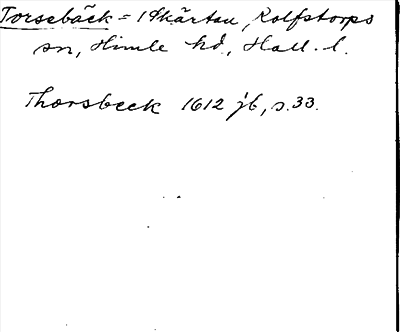 Torsebäck = 19 kärtau, Rolfstorps
sn, Himle hd, Hall. l.
Thorsbeck 1612 jb, s. 33.